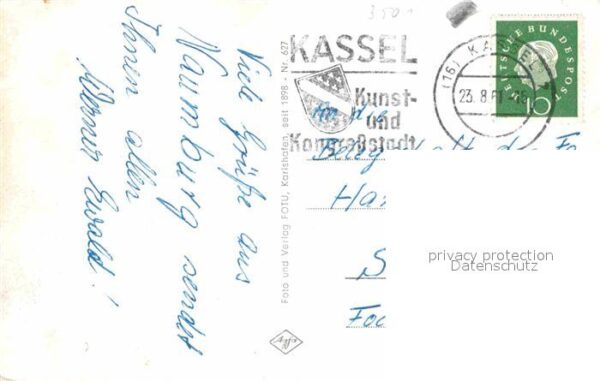 Viele Grüße aus
Naumburg sendet
Ihnen allen
Werner Ewald!
Foto und Verlag FOTU, Karlshafen, seit 1898 - Nr. 627
Agfa
3501
KASSEL
Kunst-
und
Kongreßstadt
(16) KASSEL
23.8.61
DEUTSCHE BUNDESPOST
10
An die
Ha
S
privacy protection
Datenschutz